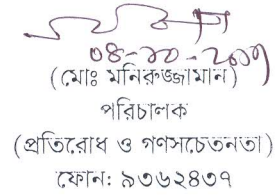 ০৪-১০-২০০৭
(মোঃ মনিরুজ্জামান)
পরিচালক
(প্রতিরোধ ও গণসচেতনতা)
ফোন: ৯৩৬২৪৩৭